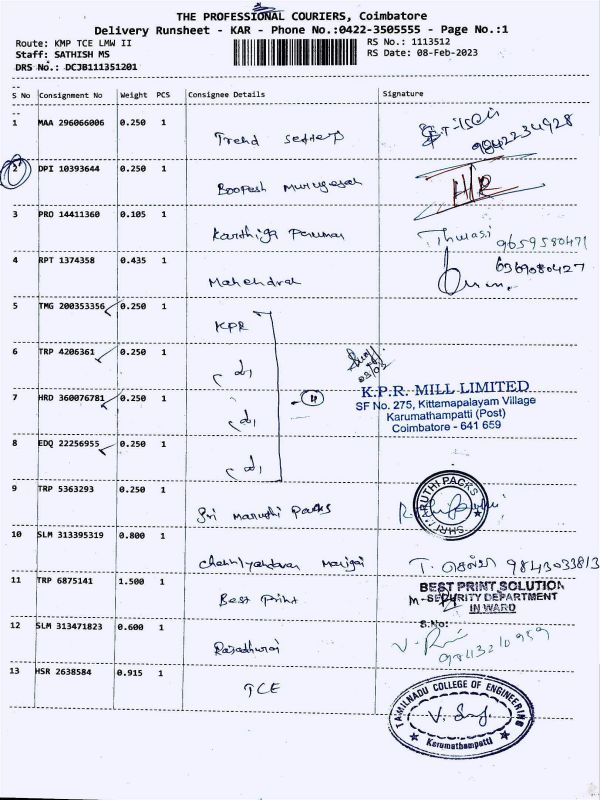 THE PROFESSIONAL COURIERS, Coimbatore
Delivery Runsheet - KAR - Phone No.:0422-3505555 - Page No.:1
Route: KMP TCE LMW II
RS No.: 1113512
Staff: SATHISH MS
RS Date: 08-Feb-2023
DRS No.: DCJB111351201
S No Consignment No Weight PCS Consignee Details Signature
1 MAA 296066006 0.250 1 Trend setters 9842234928
2 DPI 10393644 0.250 1 Boopesh Murugesan H/R
3 PRO 14411360 0.105 1 Karthiga Perumal Thulasi 9659580471
4 RPT 1374358 0.435 1 Mahendran 6369080427
5 TMG 200353356 0.250 1 KPR
6 TRP 4206361 0.250 1 do,
7 HRD 360076781 0.250 1 do,
8 EDQ 22256955 0.250 1 do,
4
K.P.R. MILL LIMITED
SF No. 275, Kittamapalayam Village
Karumathampatti (Post)
Coimbatore - 641 659
9 TRP 5363293 0.250 1 Sri Maruthi Packs
SHRI MARUTHI PACKS
10 SLM 313395319 0.800 1 9843033813
11 TRP 6875141 1.500 1 Best Print
BEST PRINT SOLUTION
SECURITY DEPARTMENT
IN WARD
S.No:
12 SLM 313471823 0.600 1 Rajadhurai 9843210959
13 HSR 2638584 0.915 1 TCE
TAMILNADU COLLEGE OF ENGINEERING
Karumathampatti